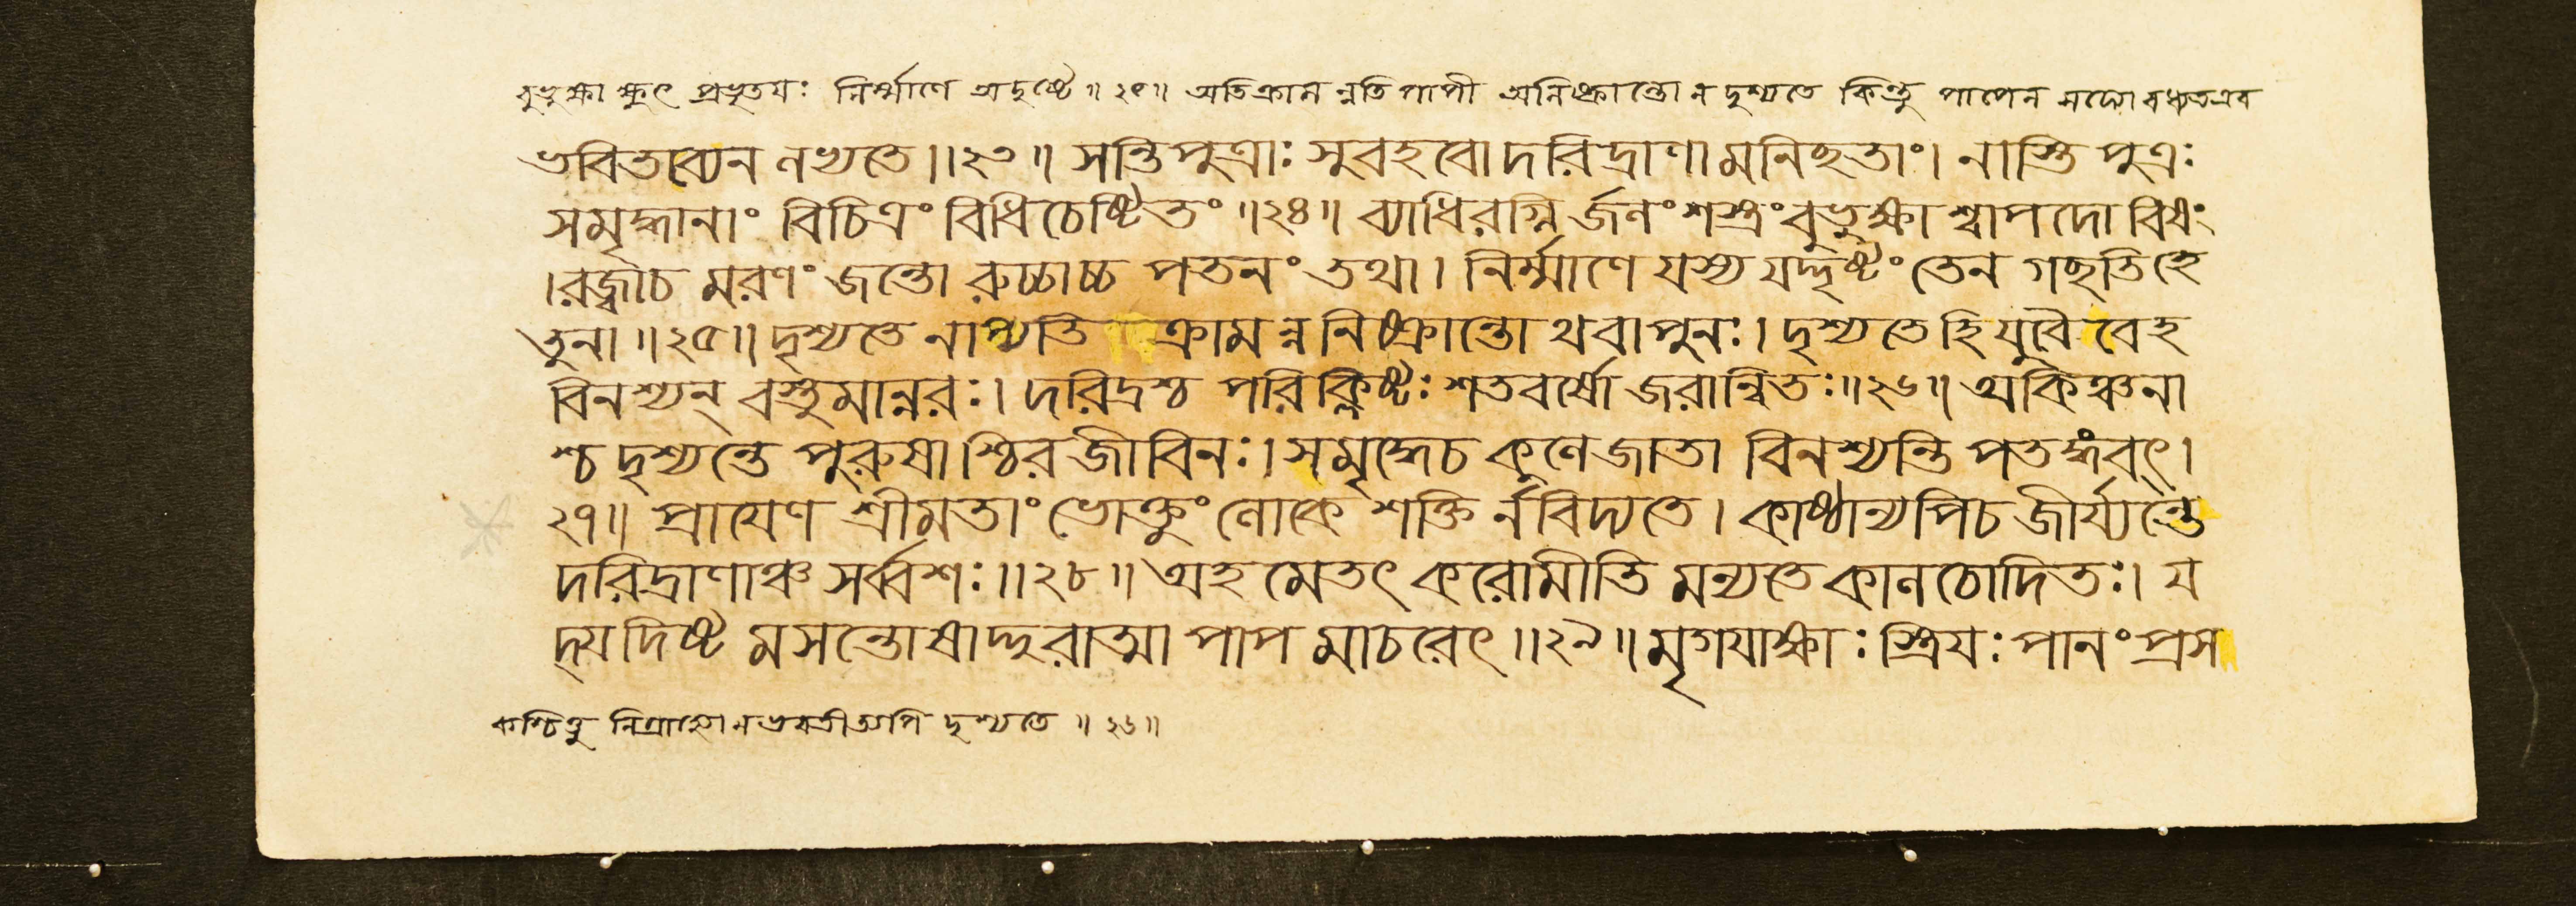 বুভুক্ষা ক্ষুৎ প্রভৃতয়ঃ নির্ম্মাণে অদৃষ্টে ॥ ২৫॥ অতিক্রামন্নতিপাপী অনিষ্ক্রান্তো ন দৃশ্যতে কিন্তু পাপেন বধ্যতএব
ভবিতব্যেন লভ্যতে॥২৩॥ সন্তি পুত্রাঃ সুবহবো দরিদ্রাণামনিচ্ছতাং। নাস্তি পুত্রঃ
সমৃদ্ধানাং বিচিত্রং বিধিচেষ্টিতং ॥২৪॥ ব্যাধিরগ্নির্জলং শস্ত্রং বুভুক্ষা শ্বাপদো বিষং
।রজ্জ্বাচ মরণং জন্তো রুচ্চাচ্চ পতনং তথা। নির্ম্মাণে যস্য যদ্দৃষ্টং তেন গচ্ছতি হে
তুনা ॥২৫॥ দৃশ্যতে নাপ্যতি ক্রামন্ন নিষ্ক্রান্তো থবা পুনঃ। দৃশ্যতে হি যুবৈবেহ
বিনশ্যন্ বসুমান্নরঃ। দরিদ্রশ্চ পরিক্লিষ্টঃ শতবর্ষো জরান্বিতঃ॥২৬॥ অকিঞ্চনা
শ্চ দৃশ্যন্তে পুরুষাশ্চিরজীবিনঃ। সমৃদ্ধেচ কুলে জাতা বিনশ্যন্তি পতঙ্গবৎ।
২৭॥ প্রায়েণ শ্রীমতাং ভোক্তুং লোকে শক্তির্নবিদ্যতে। কাষ্ঠান্যপিচ জীর্য্যন্তে
দরিদ্রাণাঞ্চ সর্ব্বশঃ॥২৮॥ অহমেতৎ করোমীতি মন্যতে কালচোদিতঃ। য
দ্যদিষ্ট মসন্তোষাদ্দুরাত্মা পাপমাচরেৎ ॥২৯॥ মৃগয়াক্ষাঃ স্ত্রিয়ঃ পানং প্রস
কশ্চিত্তু ন ভবতীত্যপি দৃশ্যতে ॥ ২৬॥